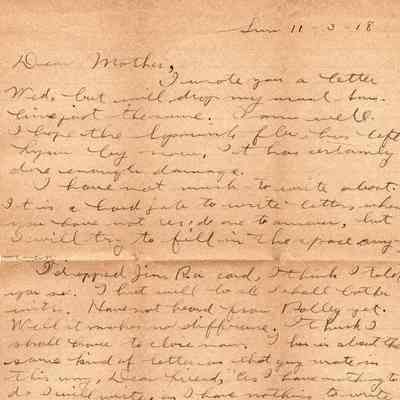 Sun 11-3-18
Dear Mother,
I wrote you a letter
Wed, but will drop my usual Sun.
line just the same. I am well.
I hope the Spanish flu has left
by now, it has certainly
done enough damage.
I have not much to write about.
It is a hard job to write letters when
you have not rec'd one to answer, but
I will try to fill in the space any-
I dropped Jim Ra card, I think I told
you so. I but will to all I shall bother
with. Have not heard from yet.
Well it makes no difference. I think I
shall have to close now. This is about the
same kind of letter as that guy wrote in
this way, Dear friend, "As I have nothing to
do I will write, as I have nothing to write